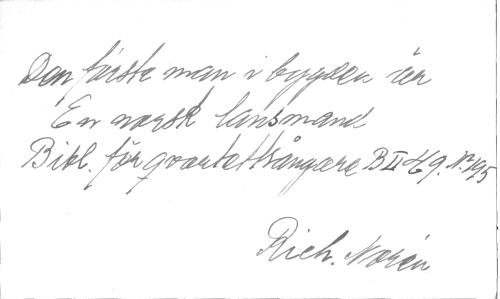 Den förste man i bygden är
En norsk lansmand
Bibl. för qvartettsångare B II H 9. Nr 195
Rich. Norén